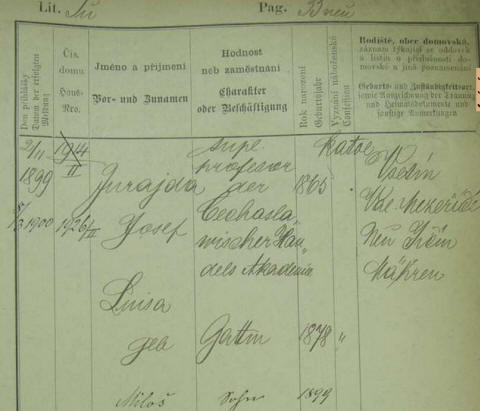 Lit. Ju Pag.
Dom přihlášky
Datum der erfolgten
Meldung
Čís.
domu
Haus-
Nro.
Jméno a příjmení
Vor- und Zunamen
Hodnost
neb zaměstnání
Charakter
oder Beschäftigung
Rok narození
Geburtsjahr
Vyznání náboženské
Confession
Rodiště, obec domovská,
záznam týkající se oddavek
a listin o příslušnosti do-
movské a jiná poznamenání
Geburts- und Zuständigkeitsort,
sowie Aufzeichnung der Trauung
und Heimatsdokumente und
sonstige Anmerkungen
2/11 1914/II supl. kathol Vsetín
1899 Jurajda professor der 1865 Val. Mezeřičí
1900 1926/II Josef Čechosla- Neu Ičín
wischer Han- Mähren
dels Akademie
Luisa
geb Gattin 1878 "
Miloš Sohn 1899